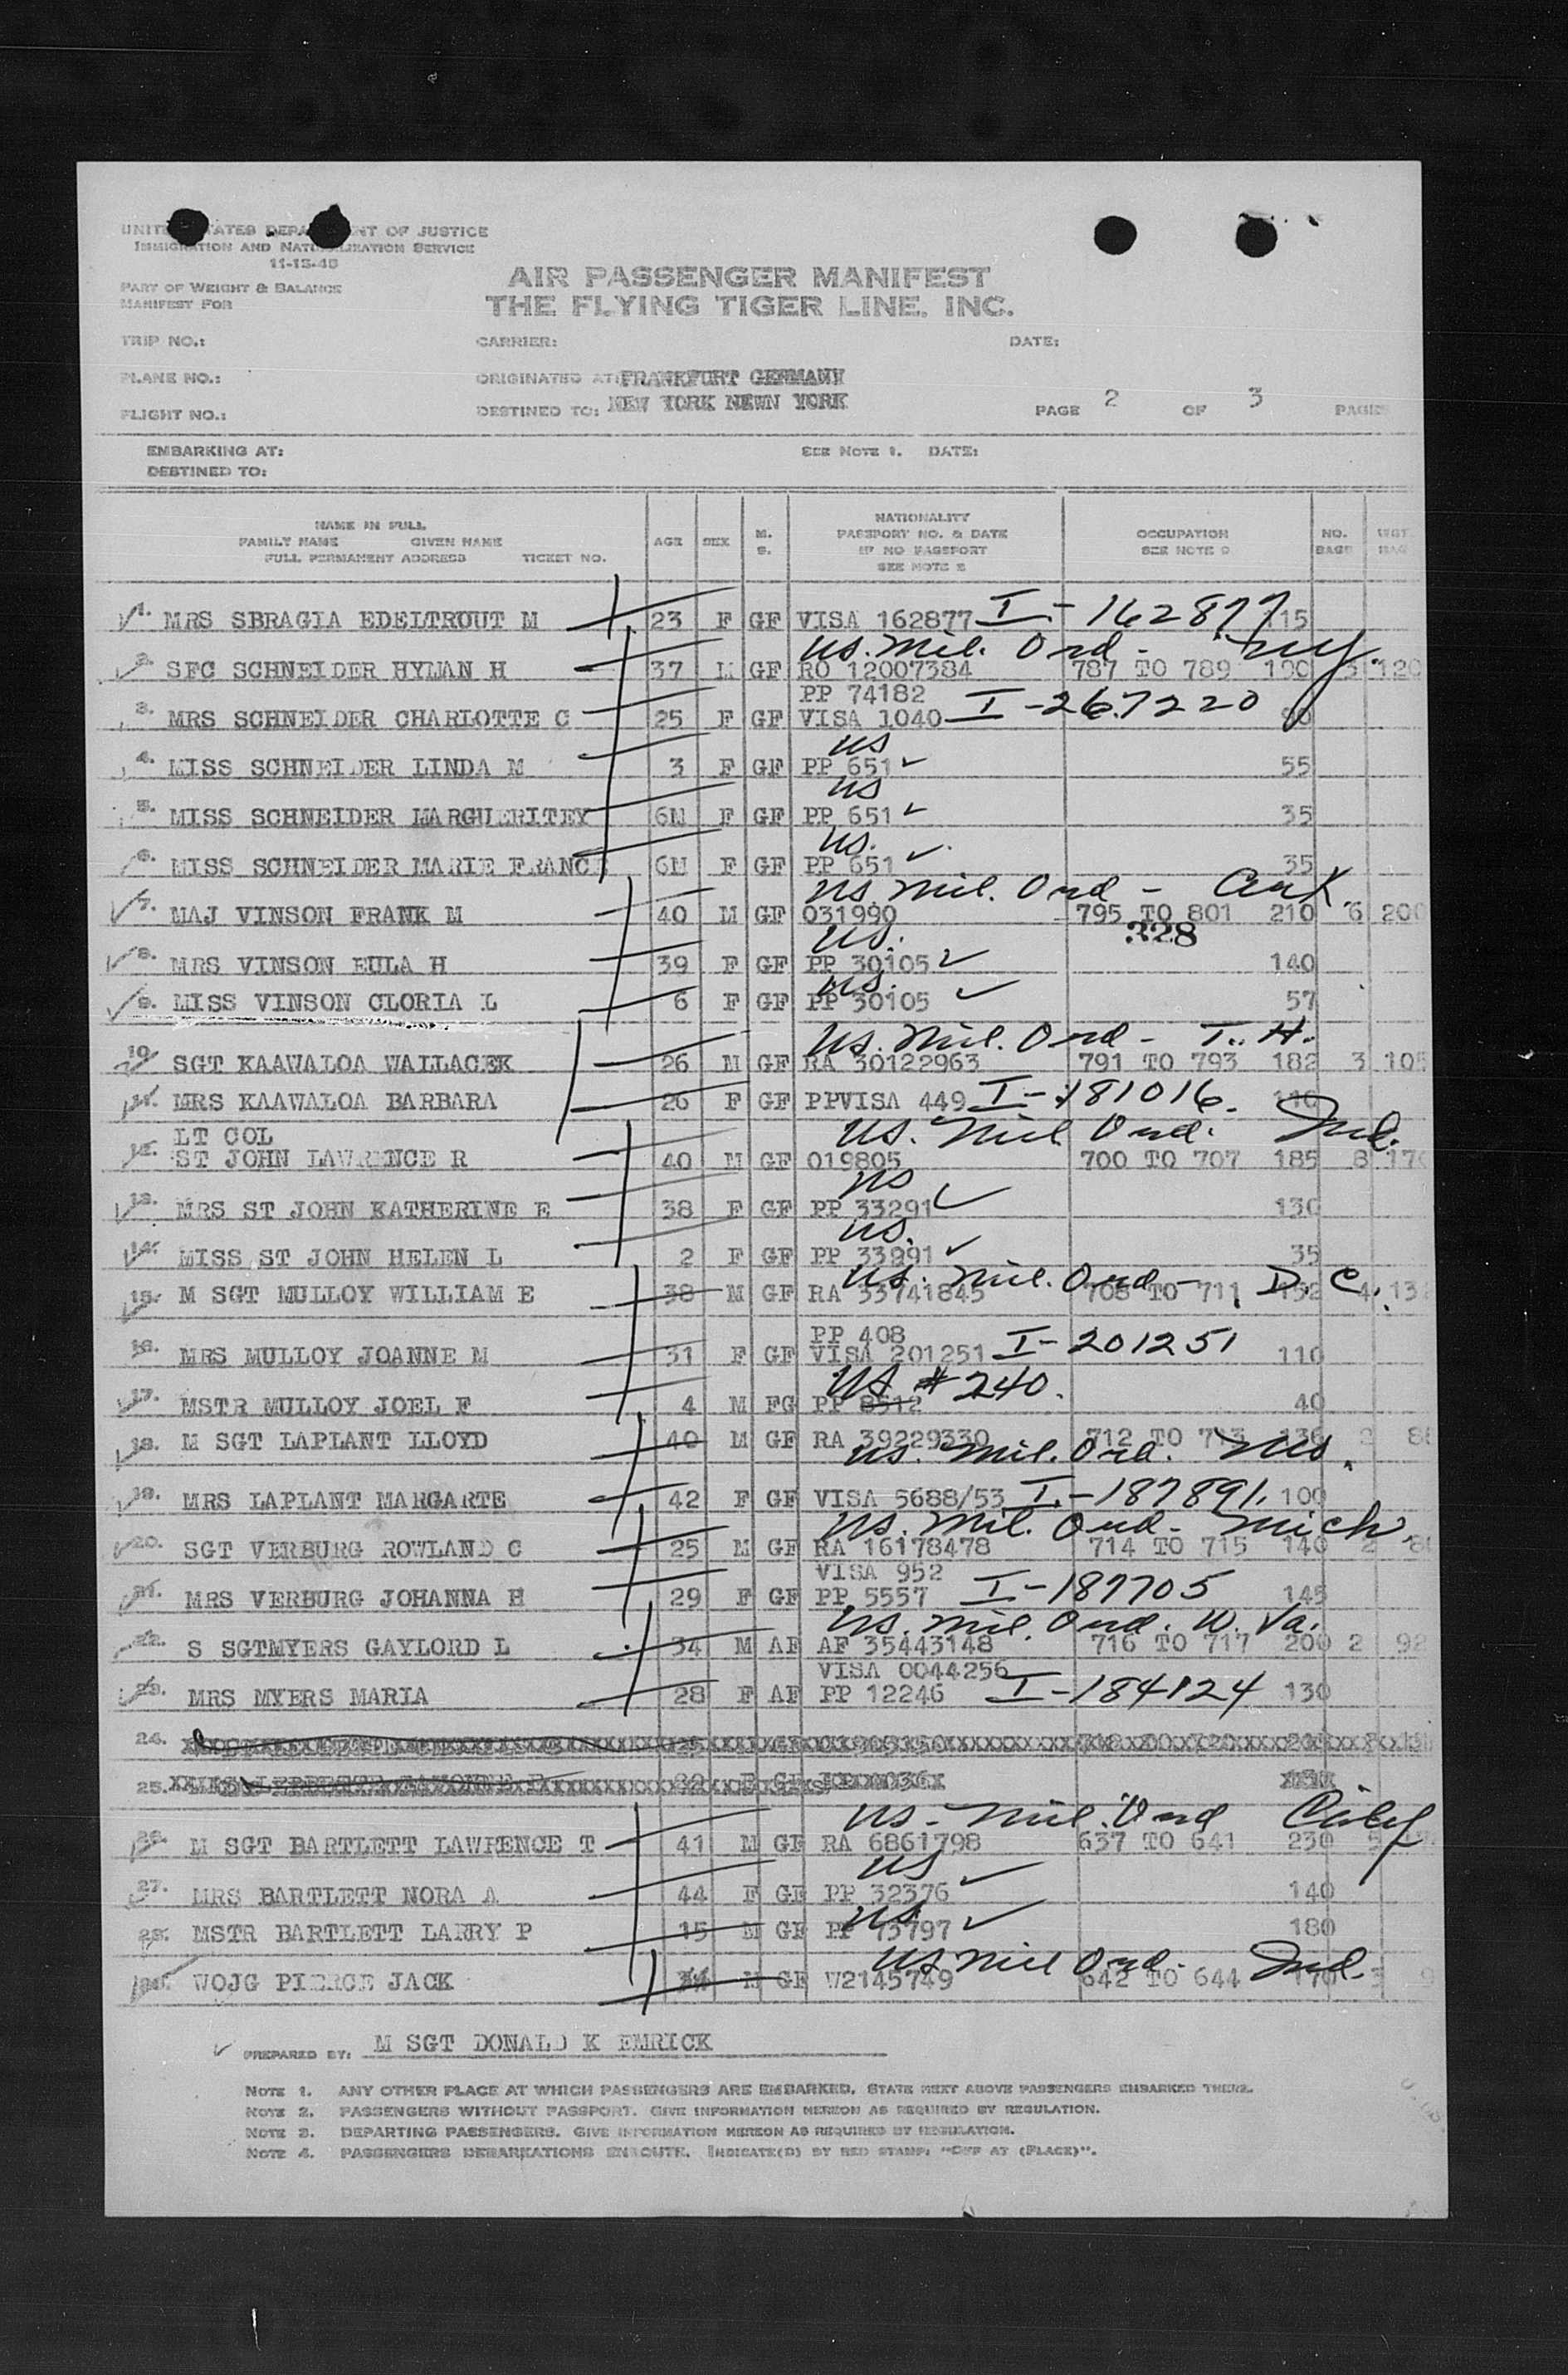 UNITED STATES DEPARTMENT OF JUSTICE
IMMIGRATION AND NATURALIZATION SERVICE
11-15-48
PART OF WEIGHT & BALANCE
MANIFEST FOR
AIR PASSENGER MANIFEST
THE FLYING TIGER LINE, INC.
TRIP NO.: CARRIER: DATE:
PLANE NO.: ORIGINATED AT: FRANKFURT GERMANY
FLIGHT NO.: DESTINED TO: NEW YORK NEWN YORK PAGE 2 OF 3 PAGES
EMBARKING AT: SEE NOTE 1. DATE:
DESTINED TO:
NAME IN FULL
FAMILY NAME GIVEN NAME
FULL PERMANENT ADDRESS TICKET NO.
AGE SEX M. S.
NATIONALITY
PASSPORT NO. & DATE
IF NO PASSPORT
SEE NOTE 2
OCCUPATION
SEE NOTE 2
NO. BAGS WGT. BAG
1. MRS SBRAGIA EDELTROUT M 23 F GF VISA 162877 I-162877 115
US. Mil. Ord - NY
2. SFC SCHNEIDER HYMAN H 37 M GF RO 12007384 787 TO 789 190 3 120
PP 74182
3. MRS SCHNEIDER CHARLOTTE C 25 F GF VISA 1040 I-267220 90
US
4. MISS SCHNEIDER LINDA M 3 F GF PP 651 55
US
5. MISS SCHNEIDER MARGUERITEY 6M F GF PP 651 35
US.
6. MISS SCHNEIDER MARIE FRANCE 6M F GF PP 651 35
US Mil. Ord - Ark
7. MAJ VINSON FRANK M 40 M GF 031990 795 TO 801 210 6 200
328
US.
8. MRS VINSON EULA H 39 F GF PP 30105 140
US.
9. MISS VINSON CLORIA L 6 F GF PP 30105 57
US. Mil. Ord - T. H.
10. SGT KAAWALOA WALLACEK 26 M GF RA 30122963 791 TO 793 182 3 105
11. MRS KAAWALOA BARBARA 26 F GF PPVISA 449 I-181016. 110
LT COL US. Mil Ord. Ind.
12. ST JOHN LAWRENCE R 40 M GF 019805 700 TO 707 185 8 170
US
13. MRS ST JOHN KATHERINE E 38 F GF PP 33291 130
US.
14. MISS ST JOHN HELEN L 2 F GF PP 33991 35
US. Mil. Ord - D. C.
15. M SGT MULLOY WILLIAM E 38 M GF RA 33741845 708 TO 711 152 4 132
PP 408
16. MRS MULLOY JOANNE M 31 F GF VISA 201251 I-201251 110
US #240.
17. MSTR MULLOY JOEL F 4 M FG PP 8512 40
18. M SGT LAPLANT LLOYD 40 M GF RA 39229330 712 TO 713 136 2
US. Mil. Ord. Mo.
19. MRS LAPLANT MARGARTE 42 F GF VISA 5688/53 I-187891. 100
US. Mil. Ord. - Mich.
20. SGT VERBURG ROWLAND C 25 M GF RA 16178478 714 TO 715 140 2
VISA 952
21. MRS VERBURG JOHANNA H 29 F GF PP 5557 I-187705 145
US. Mil. Ord. W. Va.
22. S SGTMYERS GAYLORD L 34 M AF AF 35443148 716 TO 717 200 2 92
VISA 0044256
23. MRS MYERS MARIA 28 F AF PP 12246 I-184124 130
24.
25.
US. Mil. Ord
26. M SGT BARTLETT LAWRENCE T 41 M GF RA 6861798 637 TO 641 230 5
US
27. MRS BARTLETT NORA A 44 F GF PP 32376 140
US
28. MSTR BARTLETT LARRY P 15 M GF PP 73797 180
US Mil Ord. Ind.
WOJG PIERCE JACK 34 M GF W2145749 642 TO 644 170 3
PREPARED BY: M SGT DONALD K EMRICK
NOTE 1. ANY OTHER PLACE AT WHICH PASSENGERS ARE EMBARKED, STATE NEXT ABOVE PASSENGERS EMBARKED THERE.
NOTE 2. PASSENGERS WITHOUT PASSPORT. GIVE INFORMATION HEREON AS REQUIRED BY REGULATION.
NOTE 3. DEPARTING PASSENGERS. GIVE INFORMATION HEREON AS REQUIRED BY REGULATION.
NOTE 4. PASSENGERS DEBARKATIONS ENROUTE. INDICATE(D) BY RED STAMP: "OFF AT (PLACE)".